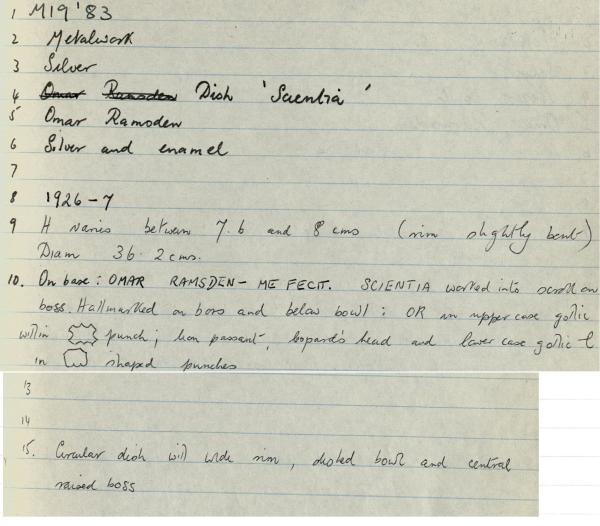 1 M19'83
2 Metalwork
3 Silver
4 Omar Ramsden Dish 'Scientia'
5 Omar Ramsden
6 Silver and enamel
7
8 1926-7
9 H varies between 7.6 and 8 cms (rim slightly bent)
Diam 36.2 cms.
10. On base: OMAR RAMSDEN - ME FECIT. SCIENTIA worked into scroll on
boss. Hallmarked on boss and below bowl: OR in uppercase gothic
within punch; lion passant, leopard's head and lower case gothic l
in shaped punches
13
14
15. Circular dish with wide rim, dished bowl and central
raised boss